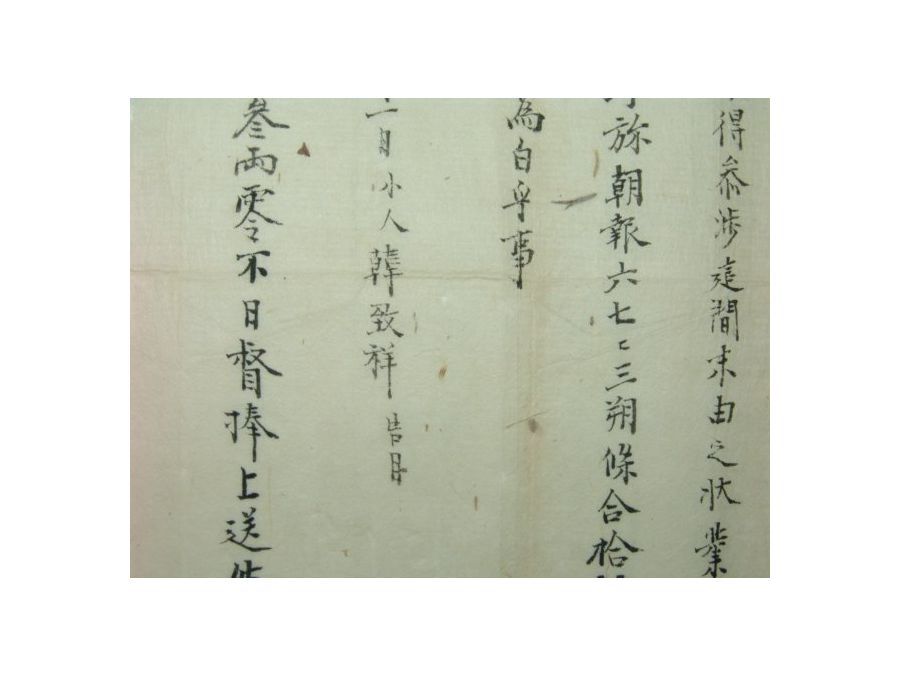 得叅涉這間未由之狀業
旀朝報六七〻三朔條合拾
為白乎事
二月小人韓致祥告目
叄兩零不日督捧上送